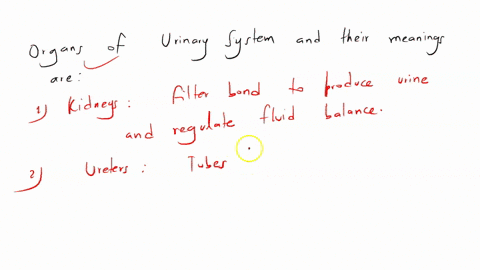 Organs of Urinary System and their meanings
are:
1) Kidneys: filter bond to produce urine
and regulate fluid balance.
2) Ureters: Tubes